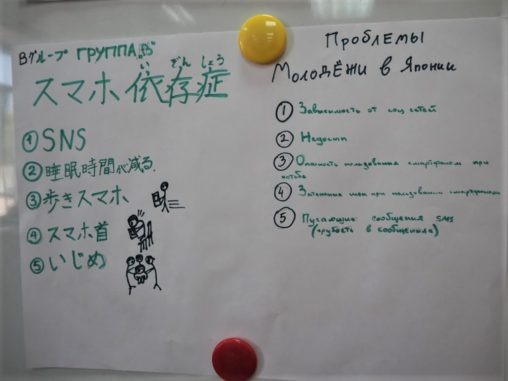 Bグループ ГРУППА „В"
い ぞん しょう
スマホ依存症
① SNS
② 睡眠時間が減る.
③ 歩きスマホ
④ スマホ首
⑤ いじめ
Проблемы
Молодёжи в Японии
① Зависимость от соц сетей
② Недосып
③ Опасность пользования смартфоном при
ходьбе
④ шеи при пользовании смартфоном
⑤ Пугающие сообщения SMS
(грубость в сообщениях)